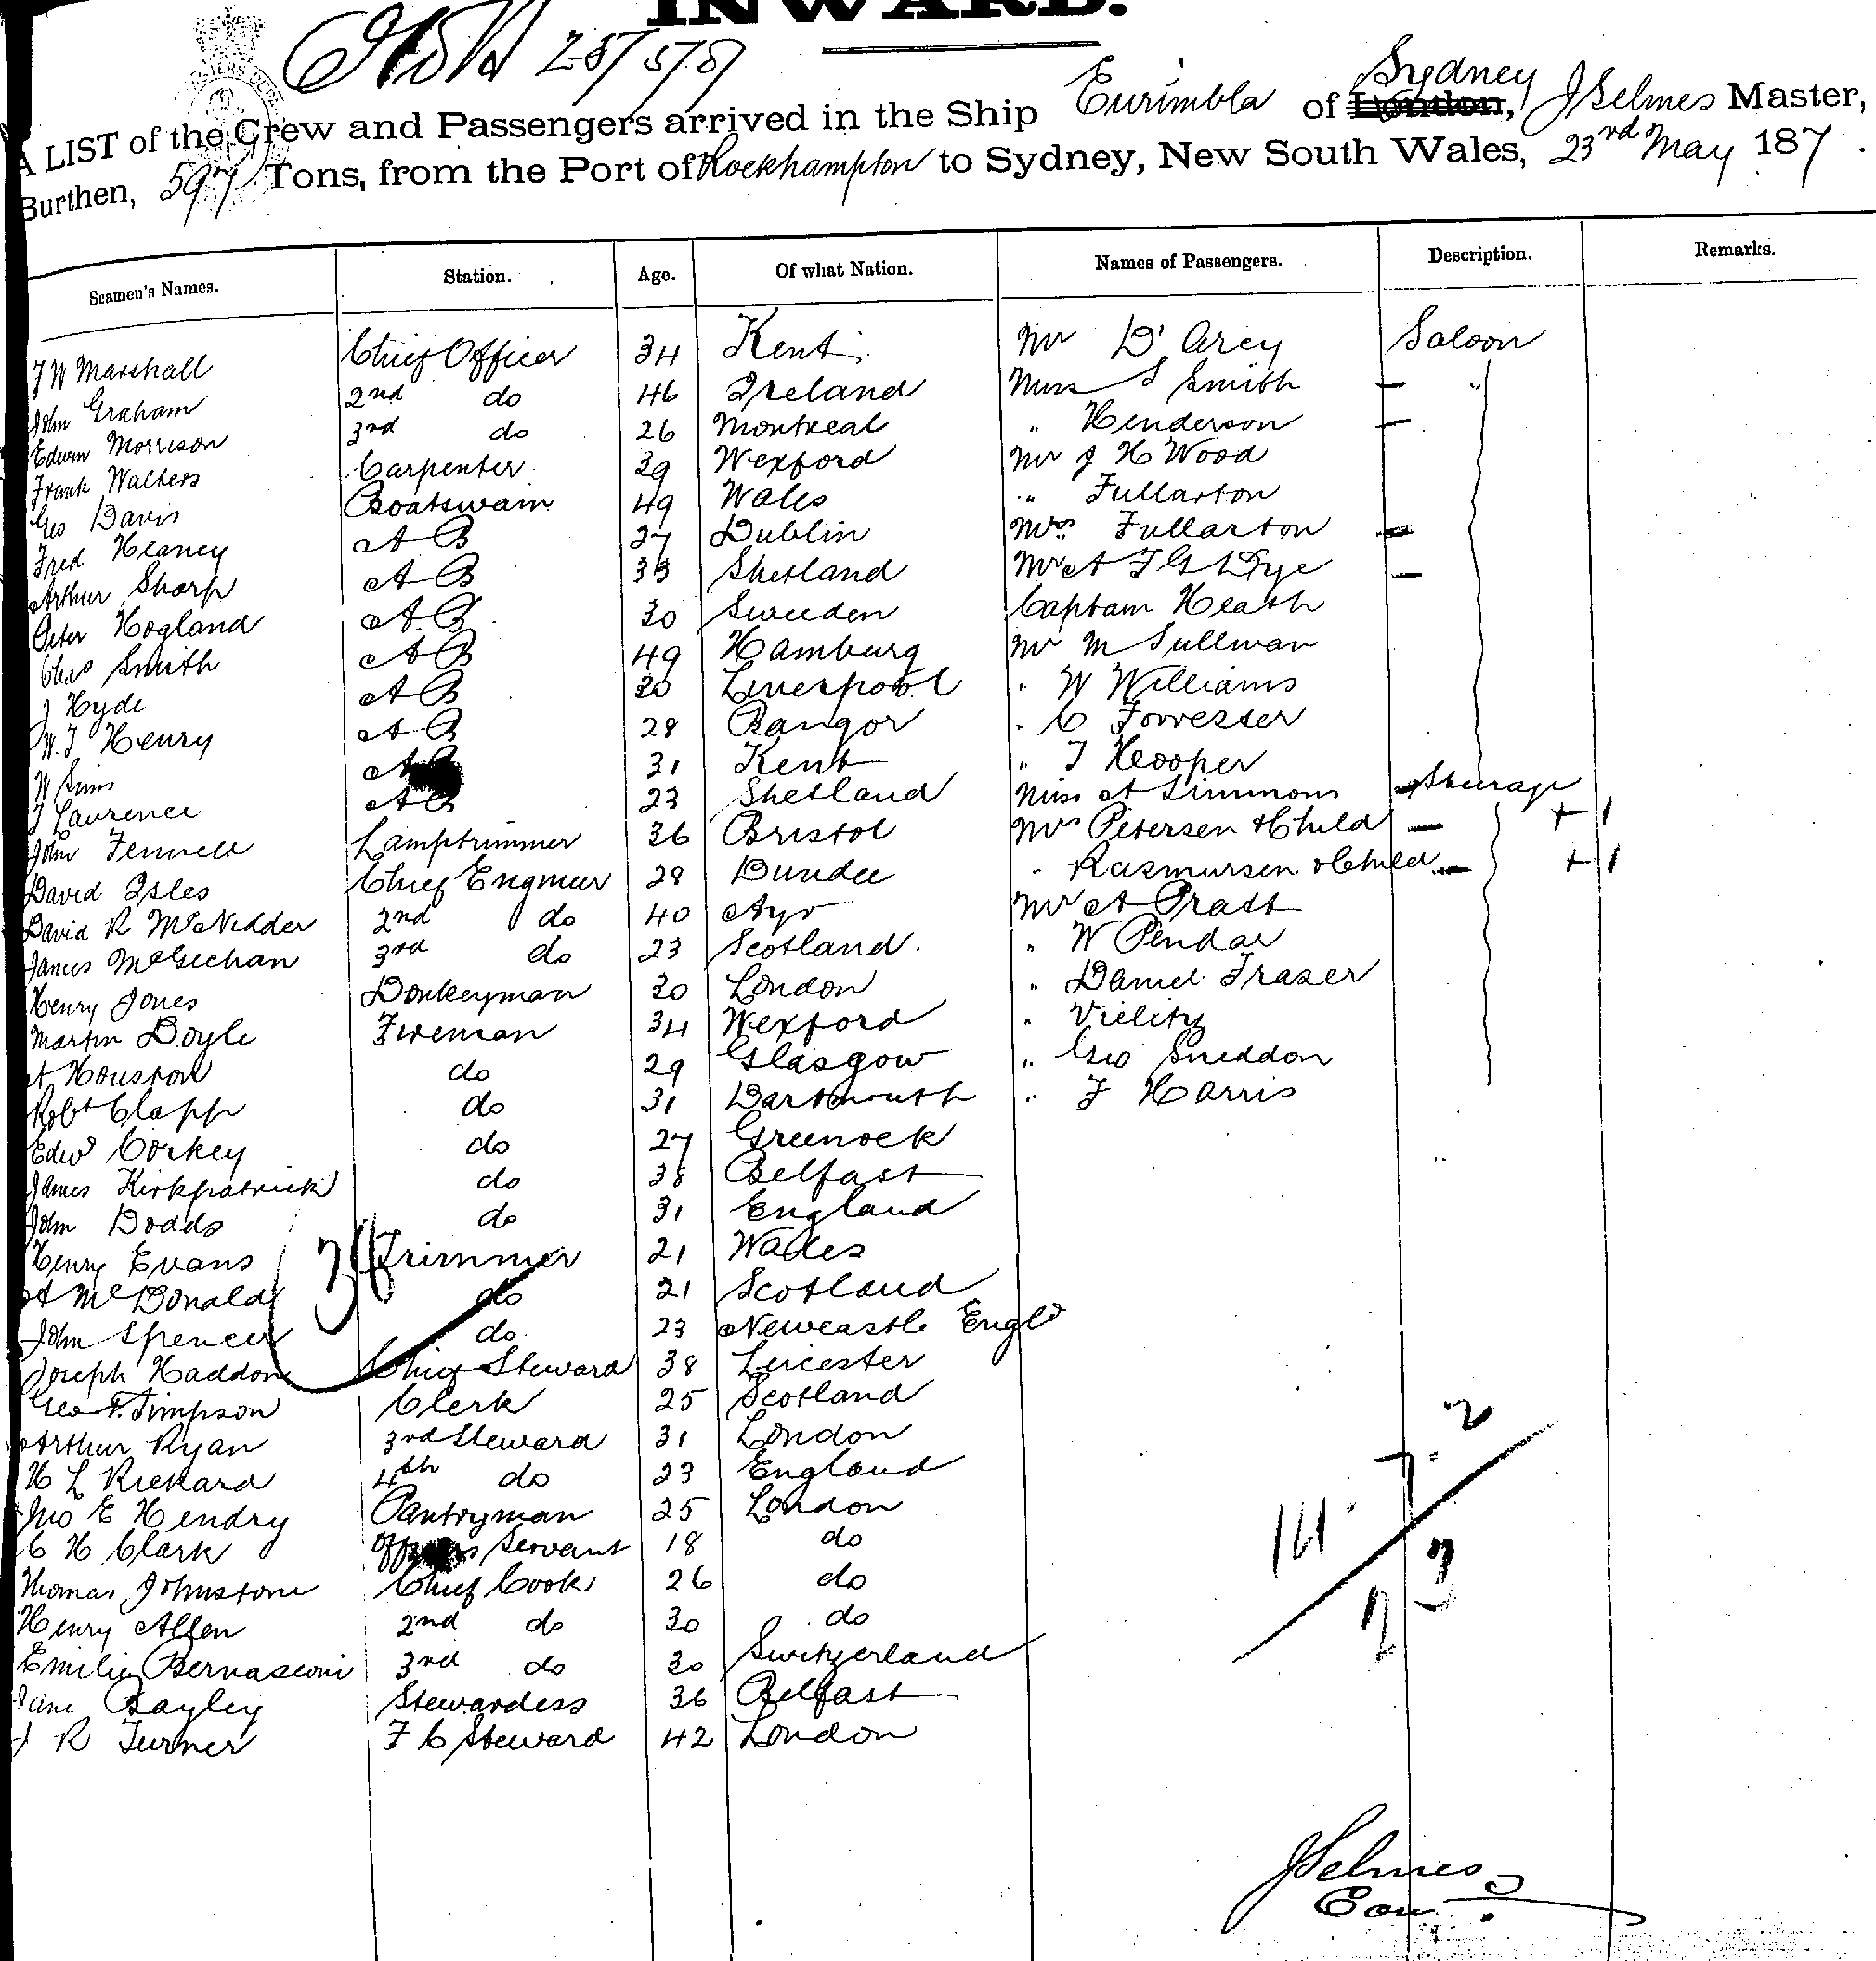 INWARD.
25/5/8
A LIST of the Crew and Passengers arrived in the Ship Eurimbla of London, Sydney, J Selmes Master,
Burthen, 597 Tons, from the Port of Rockhampton to Sydney, New South Wales, 23rd May 187 .
Seamen's Names. Station. Age. Of what Nation. Names of Passengers. Description. Remarks.
J W Marshall Chief Officer 34 Kent Mr D'Arcy Saloon
John Graham 2nd do 46 Ireland Miss S Smith — "
Edwin Morrison 3rd do 26 Montreal " Henderson —
Frank Walters Carpenter 39 Wexford Mr J H Wood
Geo Davis Boatswain 49 Wales " Fullarton
Fred Heaney A B 27 Dublin Mrs Fullarton —
Arthur Sharp A B 33 Shetland Mr A F G Dye —
Peter Hogland A B 30 Sweeden Captain Heath
Chas Smith A B 49 Hamburg Mr M Sullivan
J Hyde A B 30 Liverpool " W Williams
W. J Henry A B 28 Bangor " C Forrester
W Sims A B 31 Kent " T Hooper
J Laurence A B 23 Shetland Miss A Simmons Steerage
John Fennell Lamptrimmer 36 Bristol Mrs Petersen & Child — + 1
David Isles Chief Engineer 28 Dundee " Rasmursen & Child — + 1
David R McNidder 2nd do 40 Ayr Mr A Pratt
James McGechan 3rd do 23 Scotland. " W Pendar
Henry Jones Donkeyman 30 London " Daniel Fraser
Martin Doyle Fireman 34 Wexford " Vielitz
A Houston do 29 Glasgow " Geo Sneddon
Robt Clapp do 31 Dartmouth " F Harris
Edwd Corkey do 27 Greenock
James Kirkpatrick do 38 Belfast
John Dodds do 31 England
Henry Evans Trimmer 21 Wales
A McDonald do 21 Scotland
John Spencer do 23 Newcastle Engld
Joseph Haddon Chief Steward 38 Leicester
Geo F. Timpson Clerk 25 Scotland
Arthur Ryan 3rd Steward 31 London
H L Rickard 4th do 23 England
Jno E Hendry Pantryman 25 London
C H Clark Officers Servant 18 do
Thomas Johnstone Chief Cook 26 do
Henry Allen 2nd do 30 do
Emilie Bernasconi 3rd do 30 Switzerland
Jane Bayley Stewardess 36 Belfast
J R Turner F C Steward 42 London
7 2
14 3
2
J Selmes
Com